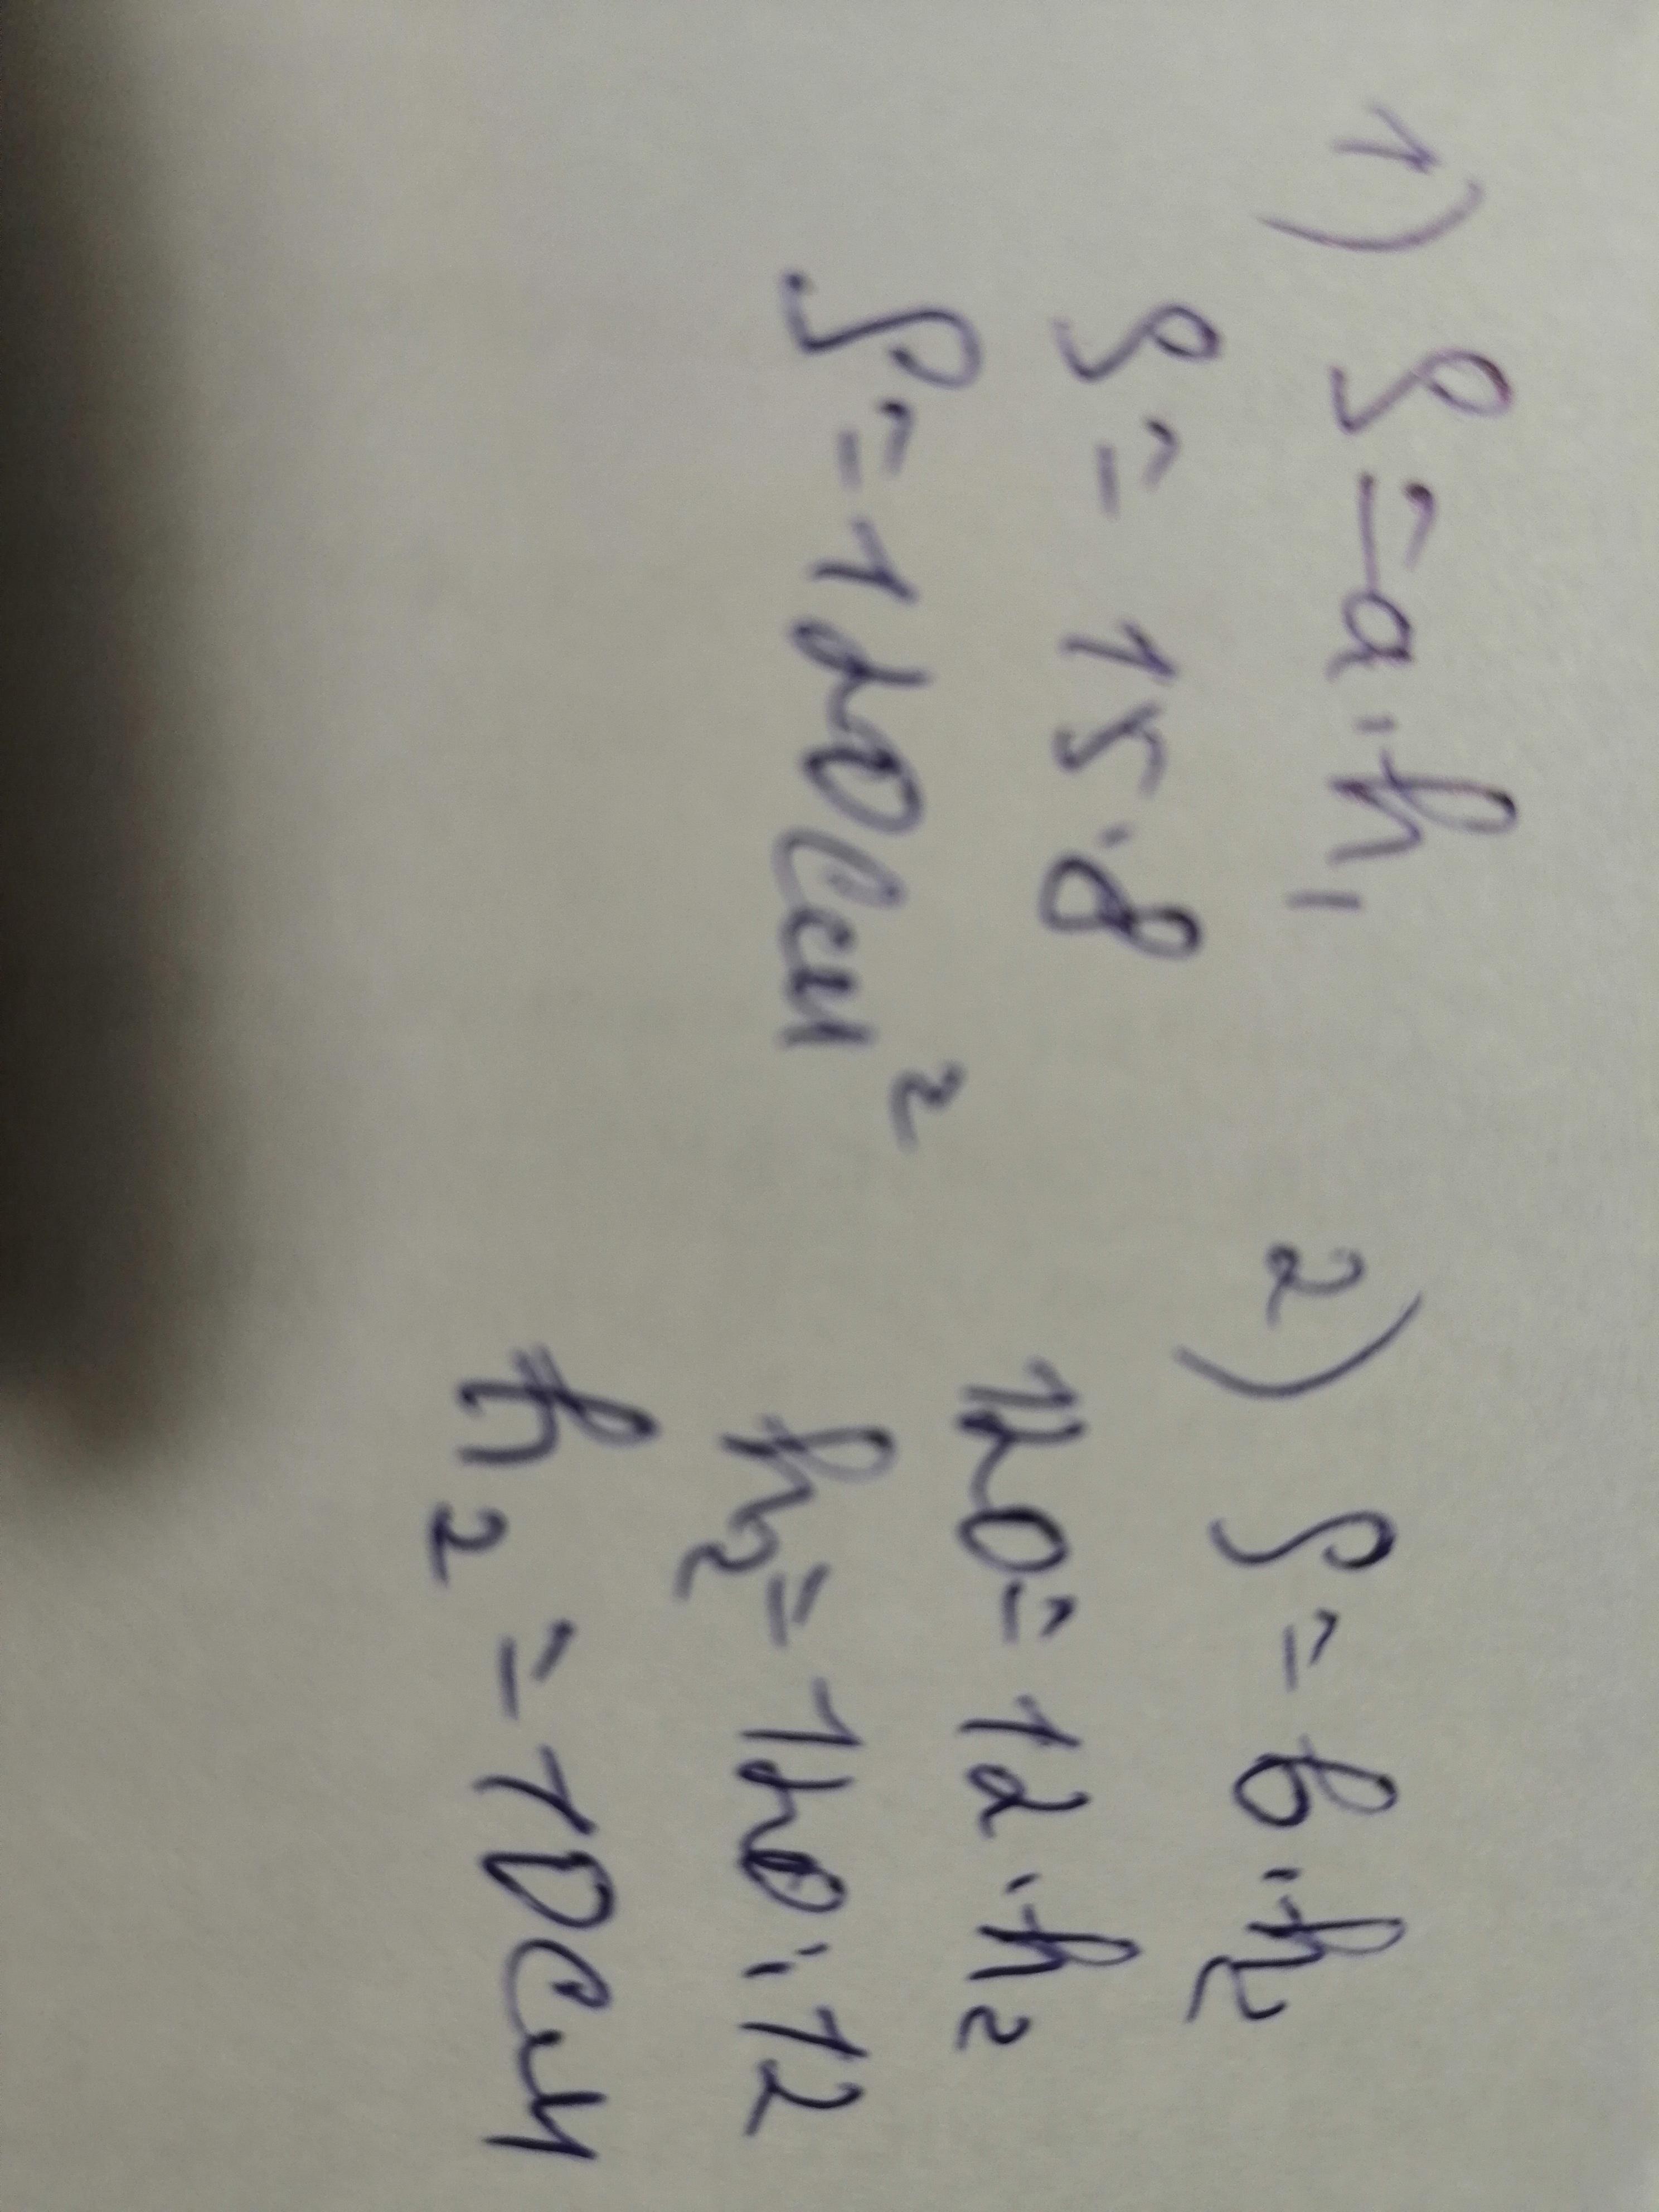 1) S = a · h₁
S = 15 · 8
S = 120 см²
2) S = b · h₂
120 = 12 · h₂
h₂ = 120 : 12
h₂ = 10 см